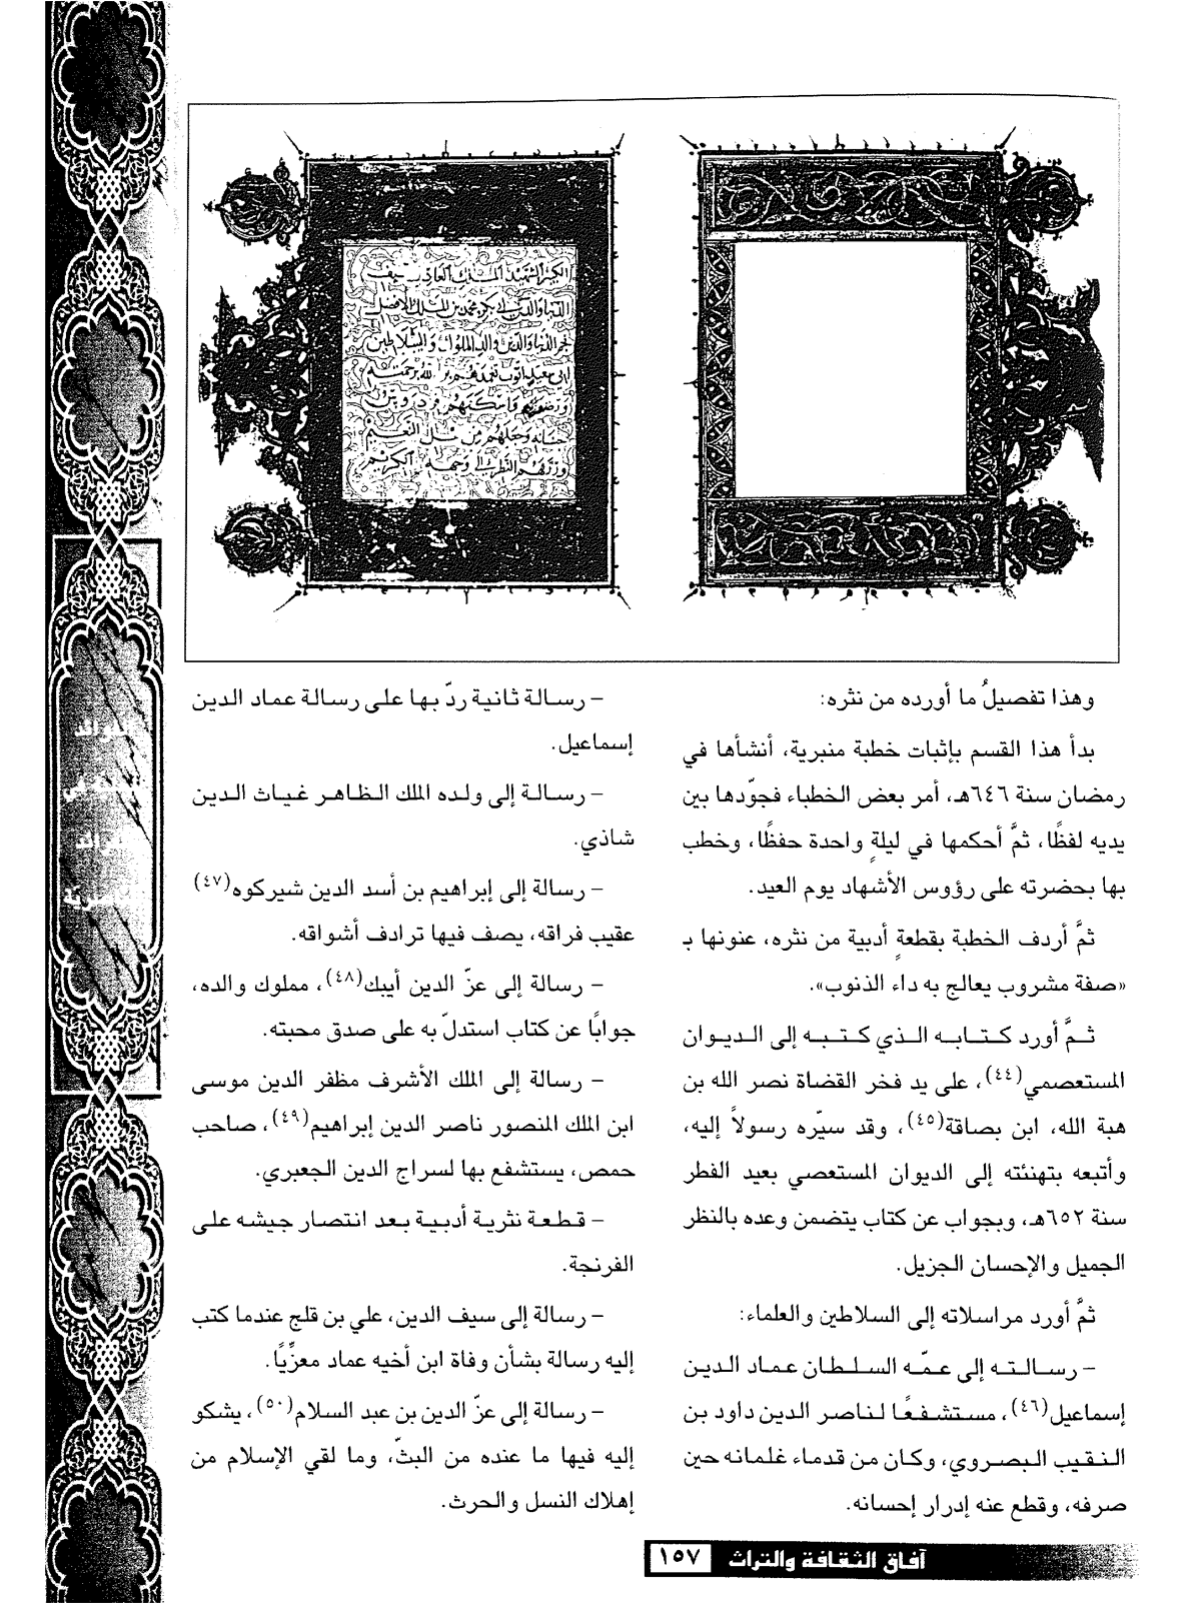 الكبير الشهيد الملك العادل سيف
الدنيا والدين أبي بكر محمد بن الملك الأفضل
نجم الدنيا والدين والد الملوك والسلاطين
أيوب تغمدهم الله برحمته
ورضوانه وأسكنهم
جنانه
ورزقهم النظر إلى وجهه الكريم
وهذا تفصيلُ ما أورده من نثره:
بدأ هذا القسم بإثبات خطبة منبرية، أنشأها في
رمضان سنة ٦٤٦هـ، أمر بعض الخطباء فجوّدها بين
يديه لفظًا، ثمَّ أحكمها في ليلةٍ واحدة حفظًا، وخطب
بها بحضرته على رؤوس الأشهاد يوم العيد.
ثمَّ أردف الخطبة بقطعةٍ أدبية من نثره، عنونها بـ
«صفة مشروب يعالج به داء الذنوب».
ثمَّ أورد كتابه الذي كتبه إلى الديوان
المستعصمي(٤٤)، على يد فخر القضاة نصر الله بن
هبة الله، ابن بصاقة(٤٥)، وقد سيّره رسولاً إليه،
وأتبعه بتهنئته إلى الديوان المستعصي بعيد الفطر
سنة ٦٥٢هـ، وبجواب عن كتاب يتضمن وعده بالنظر
الجميل والإحسان الجزيل.
ثمَّ أورد مراسلاته إلى السلاطين والعلماء:
– رسالته إلى عمّه السلطان عماد الدين
إسماعيل(٤٦)، مستشفعًا لناصر الدين داود بن
النقيب البصروي، وكان من قدماء غلمانه حين
صرفه، وقطع عنه إدرار إحسانه.
– رسالة ثانية ردّ بها على رسالة عماد الدين
إسماعيل.
– رسالة إلى ولده الملك الظاهر غياث الدين
شاذي.
– رسالة إلى إبراهيم بن أسد الدين شيركوه(٤٧)
عقيب فراقه، يصف فيها ترادف أشواقه.
– رسالة إلى عزّ الدين أيبك(٤٨)، مملوك والده،
جوابًا عن كتاب استدلّ به على صدق محبته.
– رسالة إلى الملك الأشرف مظفر الدين موسى
ابن الملك المنصور ناصر الدين إبراهيم(٤٩)، صاحب
حمص، يستشفع بها لسراج الدين الجعبري.
– قطعة نثرية أدبية بعد انتصار جيشه على
الفرنجة.
– رسالة إلى سيف الدين، علي بن قلج عندما كتب
إليه رسالة بشأن وفاة ابن أخيه عماد معزِّيًا.
– رسالة إلى عزّ الدين بن عبد السلام(٥٠)، يشكو
إليه فيها ما عنده من البثّ، وما لقي الإسلام من
إهلاك النسل والحرث.
آفاق الثقافة والتراث ١٥٧